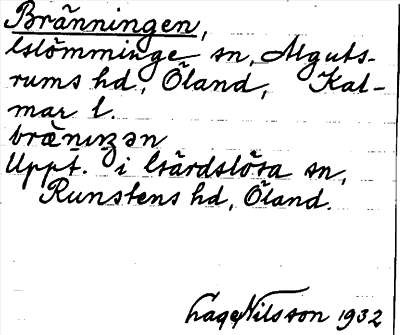 Bränningen,
Glömminge sn, Alguts-
rums hd, Öland, Kal-
mar l.
bräniŋən
Uppt. i Gärdslösa sn,
Runstens hd, Öland.
Lage Nilsson 1932